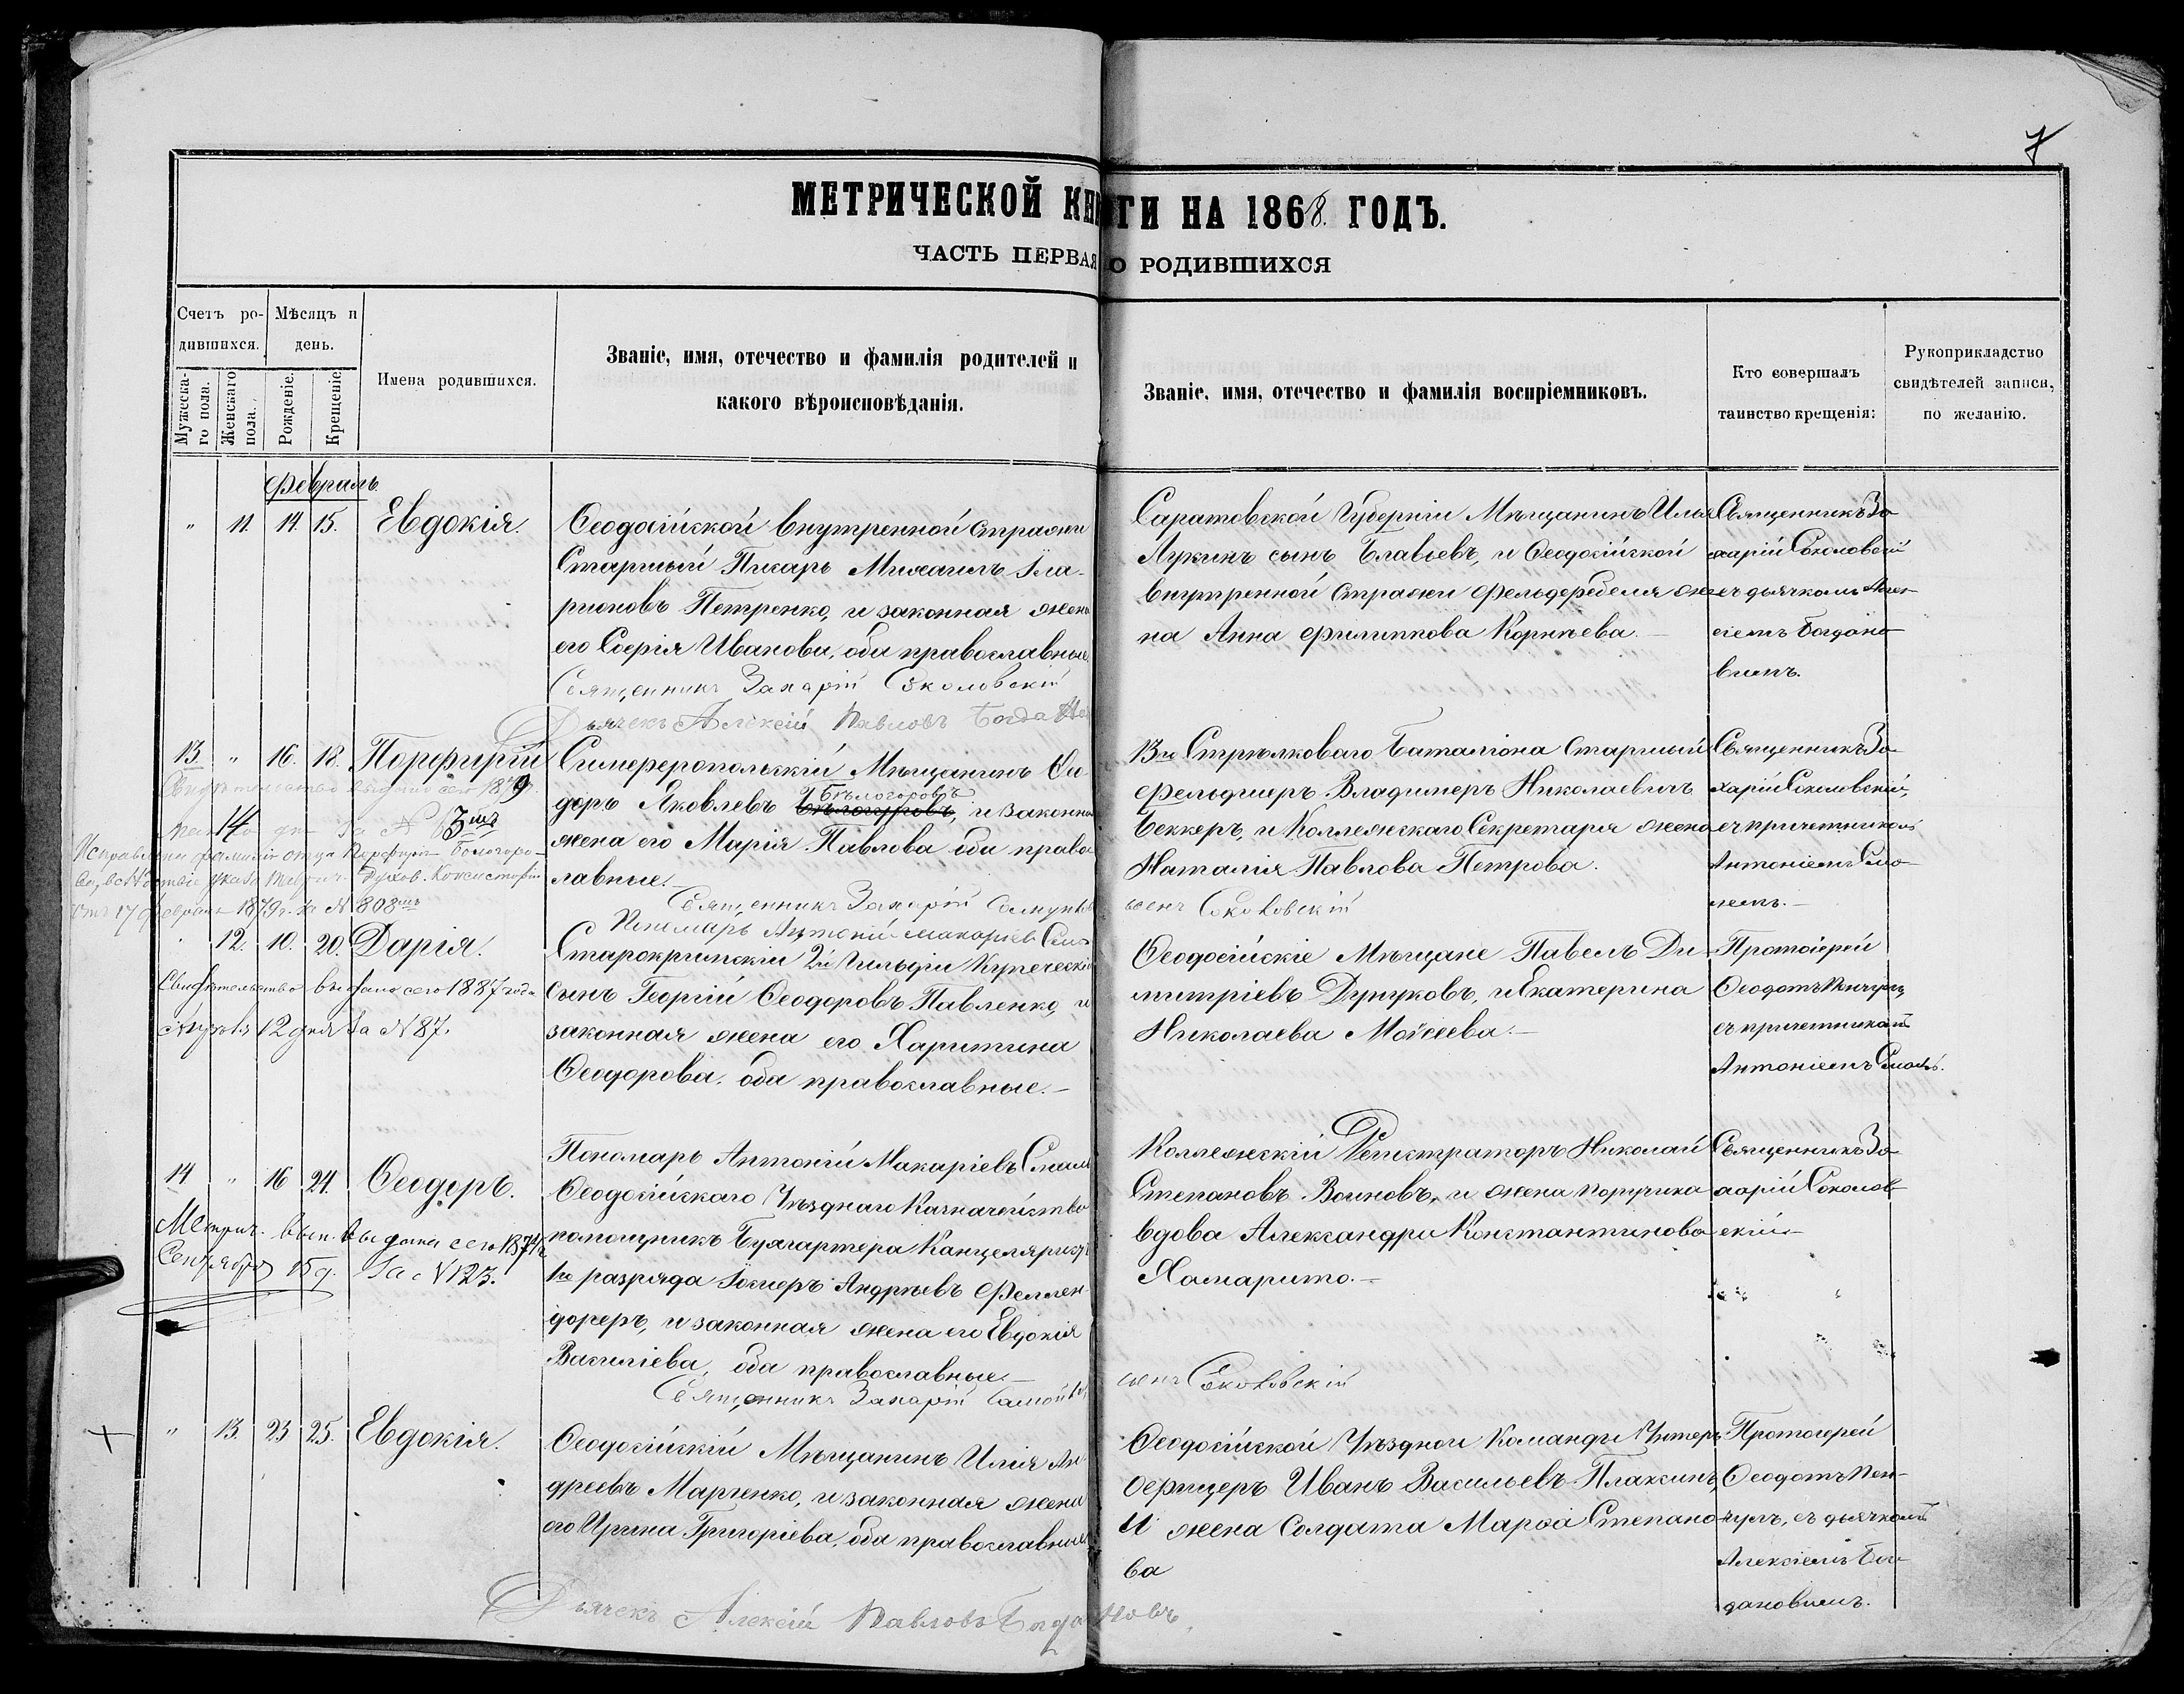 7
МЕТРИЧЕСКОЙ КНИГИ НА 1868. ГОДЪ.
ЧАСТЬ ПЕРВАЯ О РОДИВШИХСЯ
Счетъ ро-
дившихся.
Мужеска-
го пола.
Женскаго
пола.
Мѣсяцъ и
день.
Рожденіе.
Крещеніе.
Имена родившихся.
Званіе, имя, отечество и фамилія родителей и
какого вѣроисповѣданія.
Званіе, имя, отечество и фамилія воспріемниковъ.
Кто совершалъ
таинство крещенія:
Рукоприкладство
свидѣтелей записи,
по желанію.
Февраль.
" 11. 14. 15. Евдокія.
Ѳеодосійской внутренной стражи
Старшый Писарь Михаилъ Іла-
ріоновъ Петренко, и законная жена
его Софія Иванова, оби православные
Священникъ Захарій Соколовскій
Дьячекъ Алексій Павловъ Богдановъ
Саратовской Губерніи Мѣщанинъ Илья
Лукинъ сынъ Елавьевъ, и Ѳеодосійской
внутренной стражи Фельдфебеля же-
на Анна Филиппова Корнѣева.
Священникъ За-
харій Соколовскій
съ дьячкомъ Алек-
сіемъ Богдано-
вымъ.
13. " 16. 18. Порфирій
Свидѣтельство выдано сего 1879
14 дня За N 3мъ
Исправлена фамилія отца Порфирія Бѣлогоро-
ва, вслѣдствіе указа Таврич. Духов. Консисторіи
отъ 17 февраля 1879 г. за N 808мъ
Симферопольскій Мѣщанинъ Си-
Бѣлогоровъ
доръ Яковлевъ, и законная
жена его Марія Павлова оби право-
лавные.
Священникъ Захарій Самуиловъ
сынъ Соколовскій
Пономарь Антоній Макаріевъ
13го Стрѣлковаго Баталіона Старшый
Фельдшеръ Владимеръ Николаевичъ
Беккеръ, и Коллежскаго Секретаря жена
Наталія Павлова Петрова.
Священникъ За-
харій Соколовскій,
съ причетникомъ
Антоніемъ Смо-
лемъ.
" 12. 10. 20. Дарія.
Свидѣтельство выдано сего 1887 года
Апрѣля 12 дня За N 87.
Старокримскій 2й Гильдіи Купеческій
сынъ Георгій Ѳеодоровъ Павленко, и
законная жена его Харитина
Ѳеодорова. оба православные.
Пономарь Антоній Макаріевъ
Ѳеодосійскіе Мѣщане Павелъ Ди-
митріевъ Дунуковъ, и Екатерина
Николаева Моисеева.
Протоіерей
Ѳеодотъ
съ причетникомъ
Антоніемъ
14 " 16 24. Ѳеодоръ.
Метрич. вып. выдана сего 1874
Сентября 15 д. За N 123.
Ѳеодосійскаго Уѣзднаго Казначейства
помощникъ Бухгалтера Канцеляристъ
1го разряда Андреевъ Феллен-
дорфъ, и законная жена его Евдокія
Василіева, оба православные.
Священникъ Захарій Самойловъ
сынъ Соколовскій
Коллежскій Регистраторъ Николай
Степановъ Воиновъ, и жена поручика
вдова Александра Константинова
Хамарито.
Священникъ За-
харій Соколов-
скій
" 13. 23 25. Евдокія.
Ѳеодосійскій Мѣщанинъ Илія Ан-
дреевъ Марченко, и законная жена
его Ирина Григоріева, оба православные
Дьячекъ Алексій Павловъ Богдановъ
Ѳеодосійской Уѣздной Команды Унтеръ
Офицеръ Иванъ Васильевъ Плаксинъ,
и жена Солдата Марѳа Степано-
ва
Протоіерей
Ѳеодотъ Пен-
чулъ, съ дьячкомъ
Алексіемъ Бог-
дановымъ.